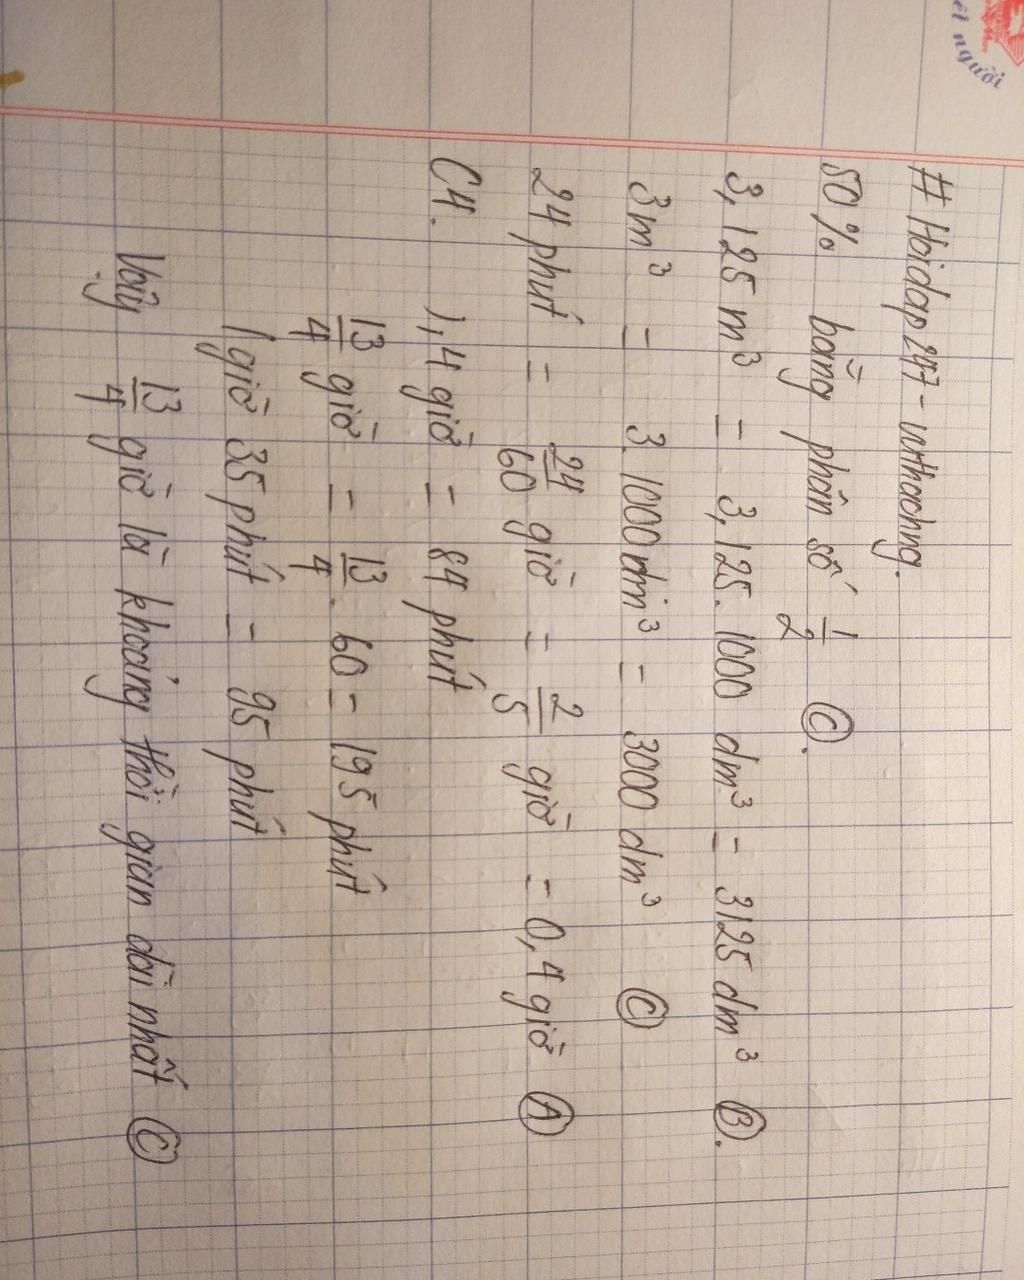 ết người
# Hoidap247 - nthachng.
50% bằng phân số 1/2 Ⓒ.
3,125 m³ = 3,125.1000 dm³ = 3125 dm³ Ⓑ.
3m³ = 3.1000dm³ = 3000 dm³ Ⓒ
24 phút = 24/60 giờ = 2/5 giờ = 0,4 giờ Ⓐ
C4. 1,4 giờ = 84 phút
13/4 giờ = 13/4 . 60 = 195 phút
1 giờ 35 phút = 95 phút
Vậy 13/4 giờ là khoảng thời gian dài nhất Ⓒ